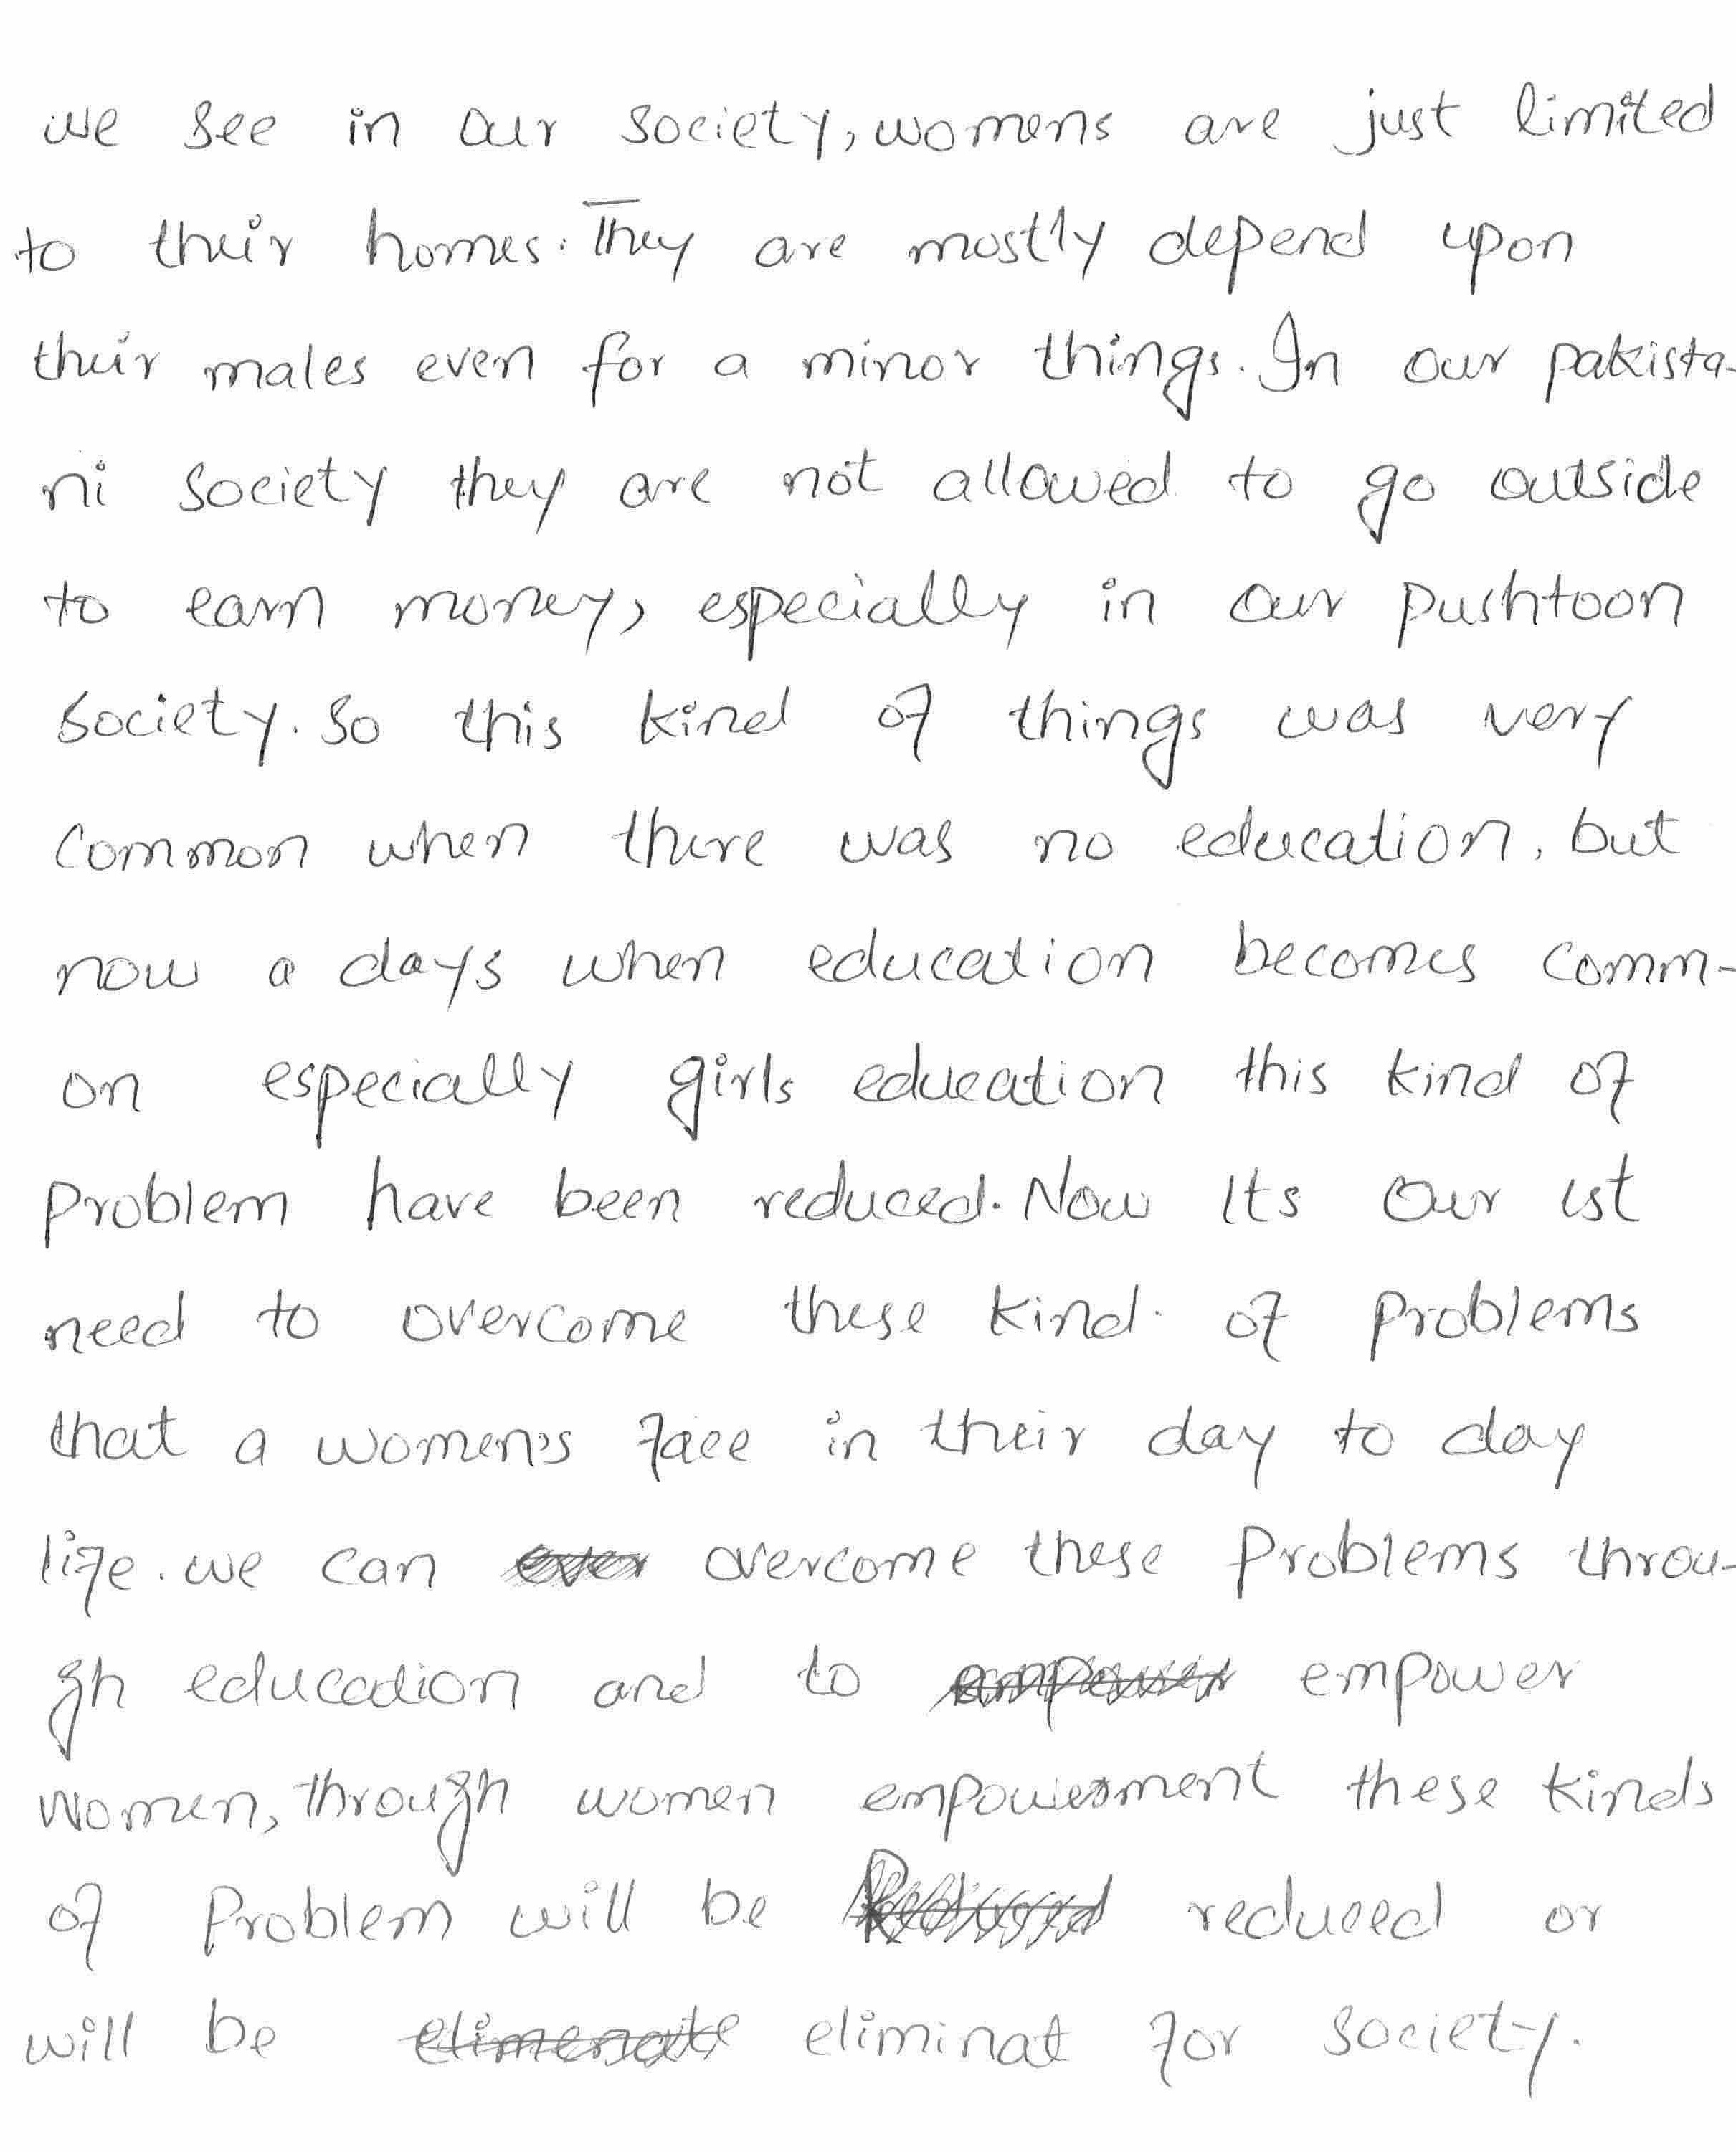 we see in our society, womens are just limited
to their homes. They are mostly depend upon
their males even for a minor things. In our pakista-
ni society they are not allowed to go outside
to earn money, especially in our pushtoon
society. So this kind of things was very
common when there was no education, but
now a days when education becomes comm-
on especially girls education this kind of
problem have been reduced. Now Its our 1st
need to overcome these kind of problems
that a women's face in their day to day
life. we can overcome these problems throu-
gh education and to empower
women, through women empowerment these kinds
of problem will be reduced or
will be eliminat for society.